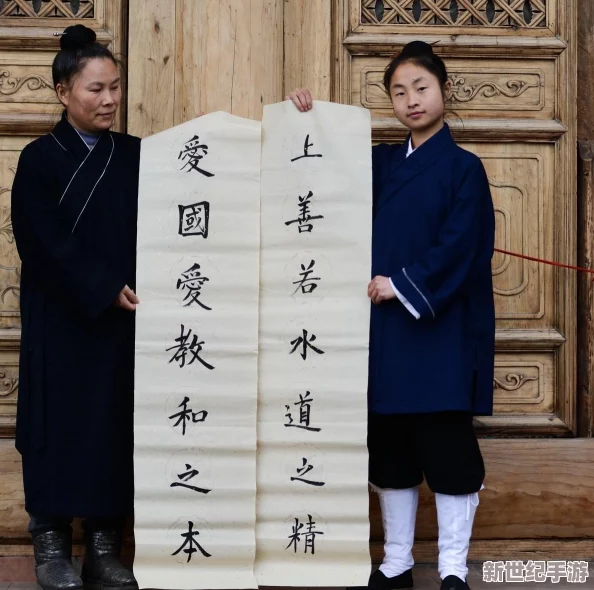 上善若水道之精
愛國愛教和之本
新世纪手游